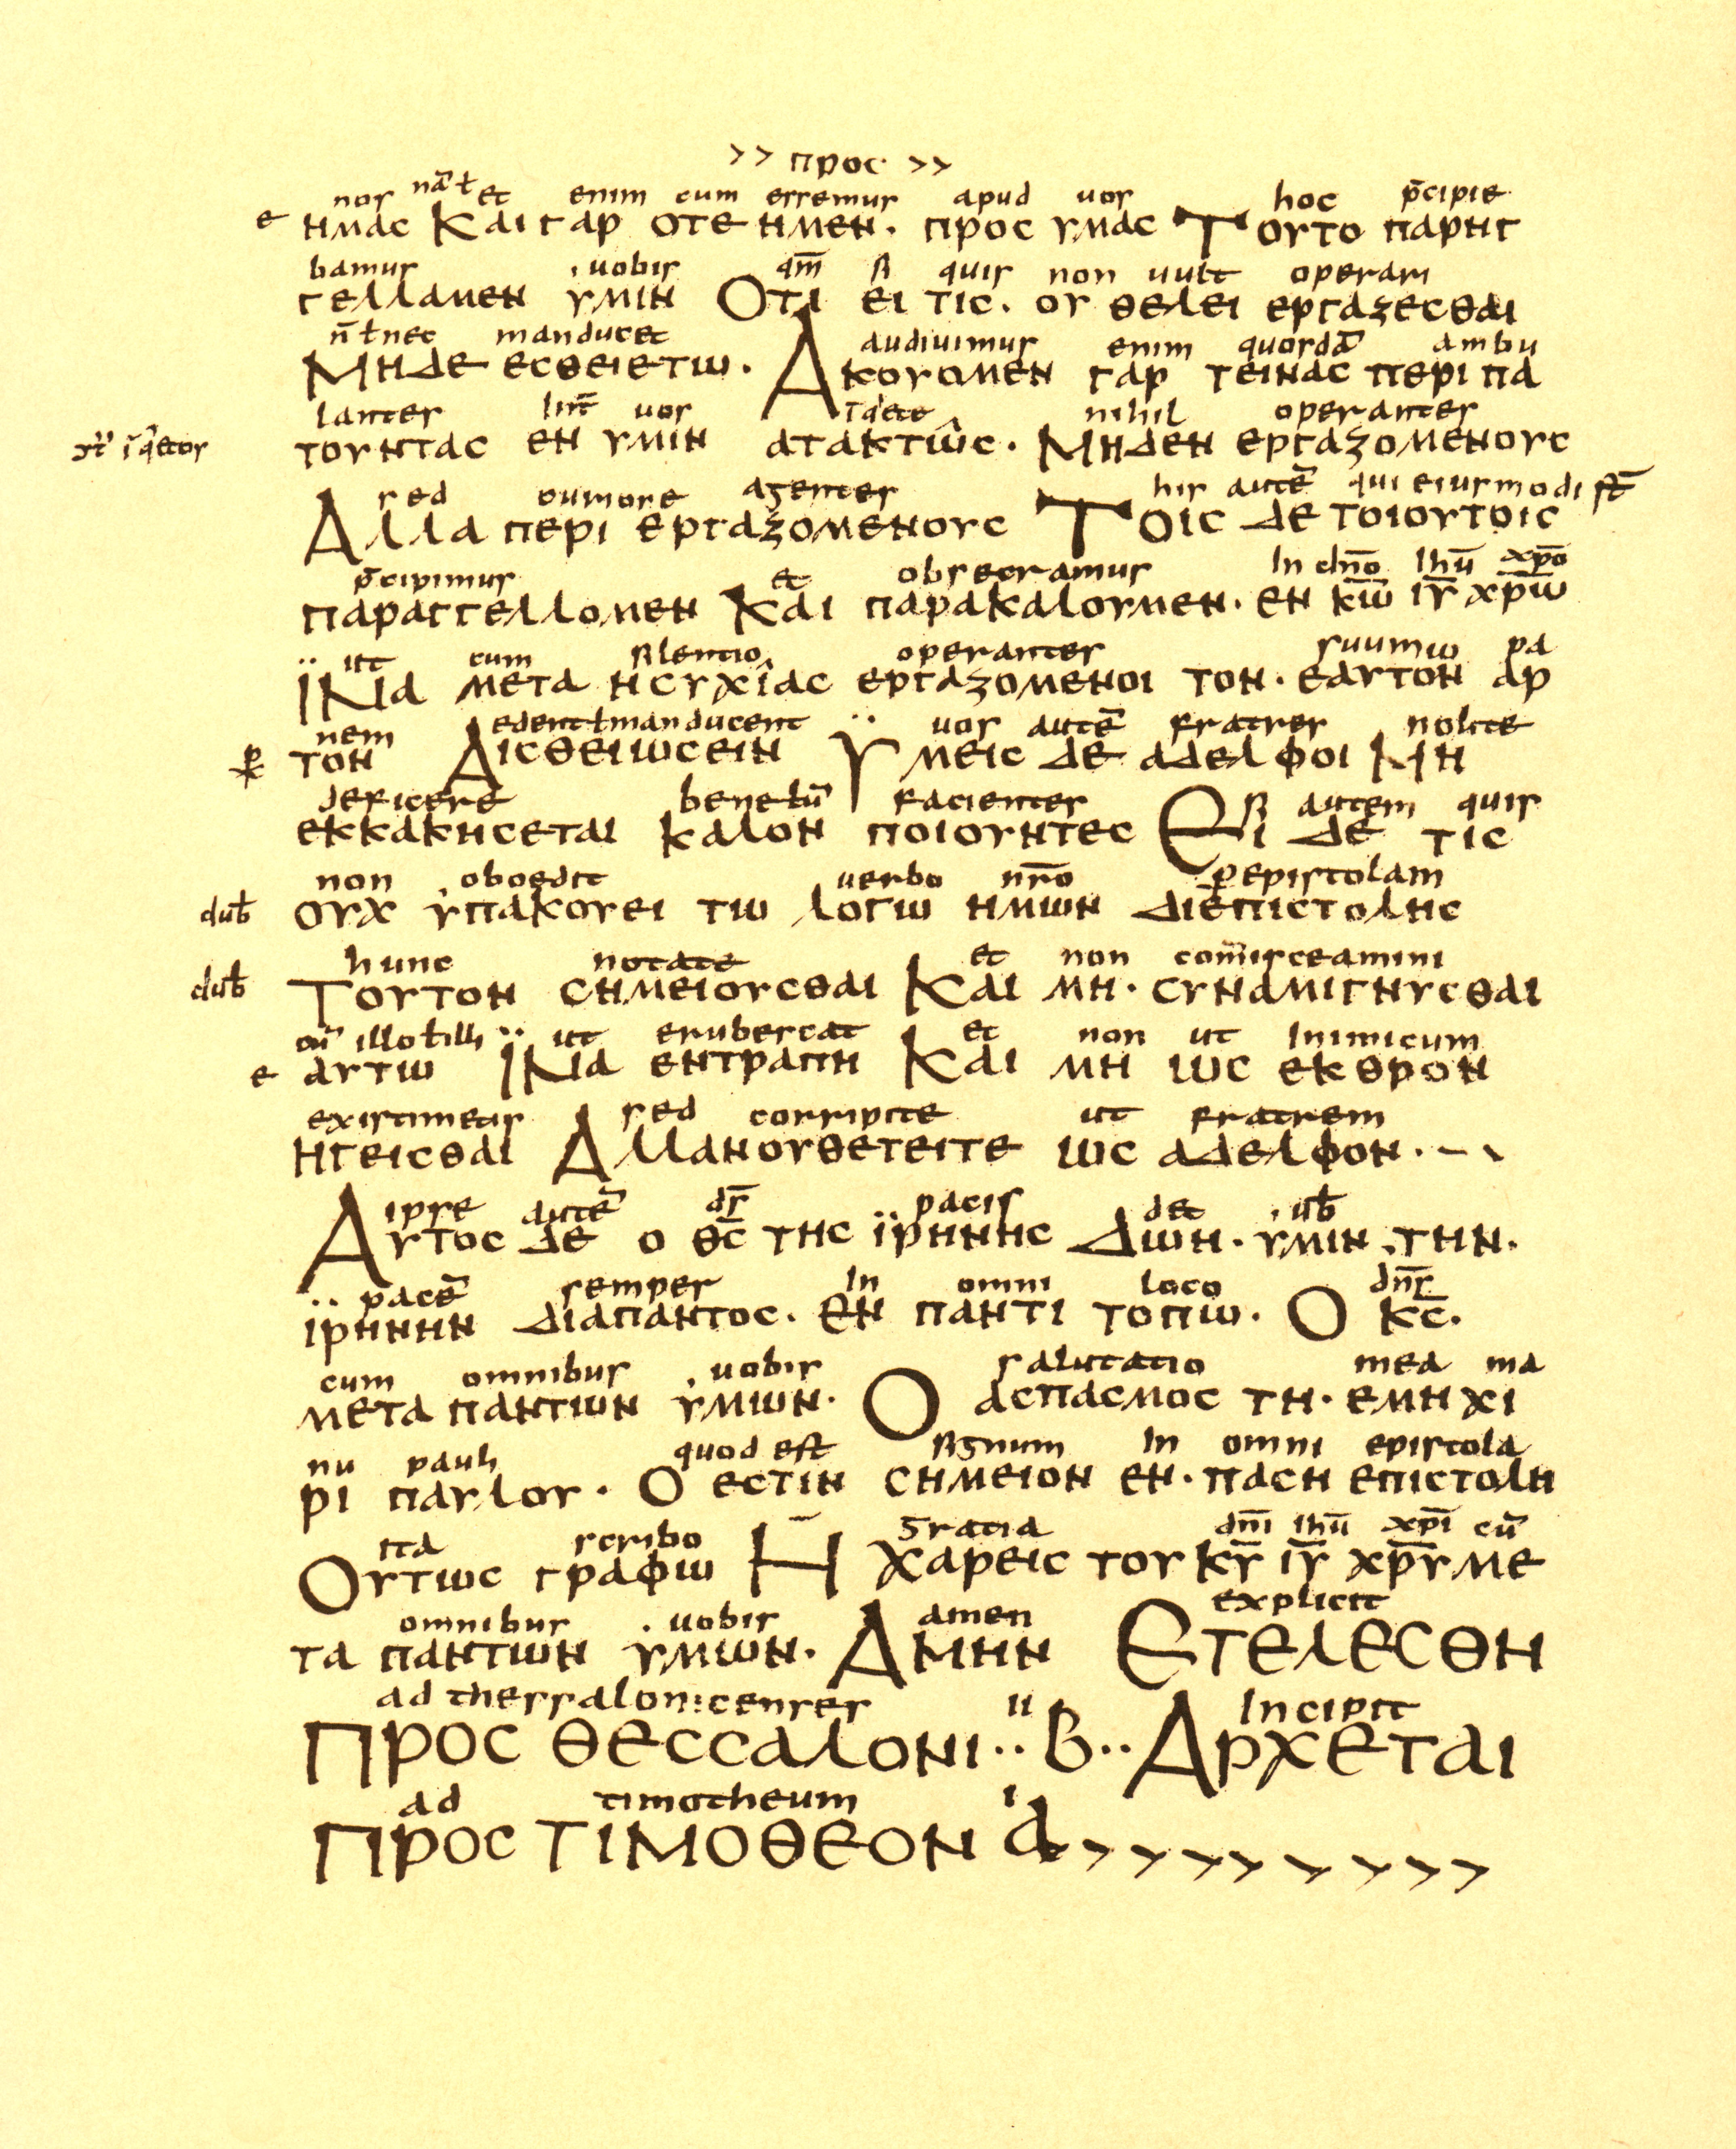 >> προς >>
nos nā ł et enim cum essemus apud uos hoc p̄cipie
e ημας Και γαρ οτε ημεν· προς υμας Τουτο παρηγ
bamus uobis qm̄ si quis non uult operari
γελλαμεν υμιν Οτι ει τις· ου θελει εργαζεσθαι
n̄ ł nec manducet audiuimus enim quosdā ambu
Μηδε εσθειετω· Ακουομεν γαρ τεινας περι πα
lantes int̄ uos nihil operantes
τουντας εν υμιν ατακτως· Μηδεν εργαζομενους
sed curiose agentes his autē qui eiusmodi st̄
Αλλα περι εργαζομενους Τοις δε τοιουτοις
p̄cipimus et obsecramus In dn̄o ihū xp̄o
παραγγελλομεν Και παρακαλουμεν· εν κ̅ω̅ ι̅υ̅ χ̅ρ̅ω̅
ut cum silentio operantes suum pa
Ϊνα μετα ησυχιας εργαζομενοι τον· εαυτον αρ
nem edent ł manducent uos autē fratres nolite
τον Αισθειωσειν Ϋμεις δε αδελφοι Μη
deficere benefacientes si autem quis
εκκακησεται καλον ποιουντες Ει δε τις
non oboedit uerbo nr̄o p̱ epistolam
dub̄ ουχ υπακουει τω λογω ημων διεπιστολης
hunc notate et non com̄isceamini
dub̄ Τουτον σημειουσθαι Και μη· συναμιγνυσθαι
cū illo ł illi ut erubescat et non ut Inimicum
e αυτω Ϊνα εντραπη Και μη ως εκθρον
existimetis sed corripite ut fratrem
ηγεισθαι Αλλανουθετειτε ως αδελφον·
ipse autē ds̄ pacis det ub̄
Αυτος δε ο θ̅ς̅ της ϊρηνης Δωη· υμιν την·
pacē semper In omni loco dn̄s
ϊρηνην διαπαντος· εν παντι τοπω· Ο κ̅ς̅·
cum omnibus uobis salutatio mea ma
μετα παντων υμων· Ο ασπασμος τη· εμη χι
nu pauli quod est signum In omni epistola
ρι παυλου· Ο εστιν σημειον εν· παση επιστολη
ita scribo gratia dn̄i ihū xp̄i cū
Ουτως γραφω Η χαρεις του κ̅υ̅ ι̅υ̅ χ̅ρ̅υ̅ με
omnibus uobis amen explicit
τα παντων υμων· Αμην Ετελεσθη
ad thessalonicenses II Incipit
Προς Θεσσαλονι·· Β·· Αρχεται
ad timotheum I
Προς Τιμοθεον α > > > > > > > >